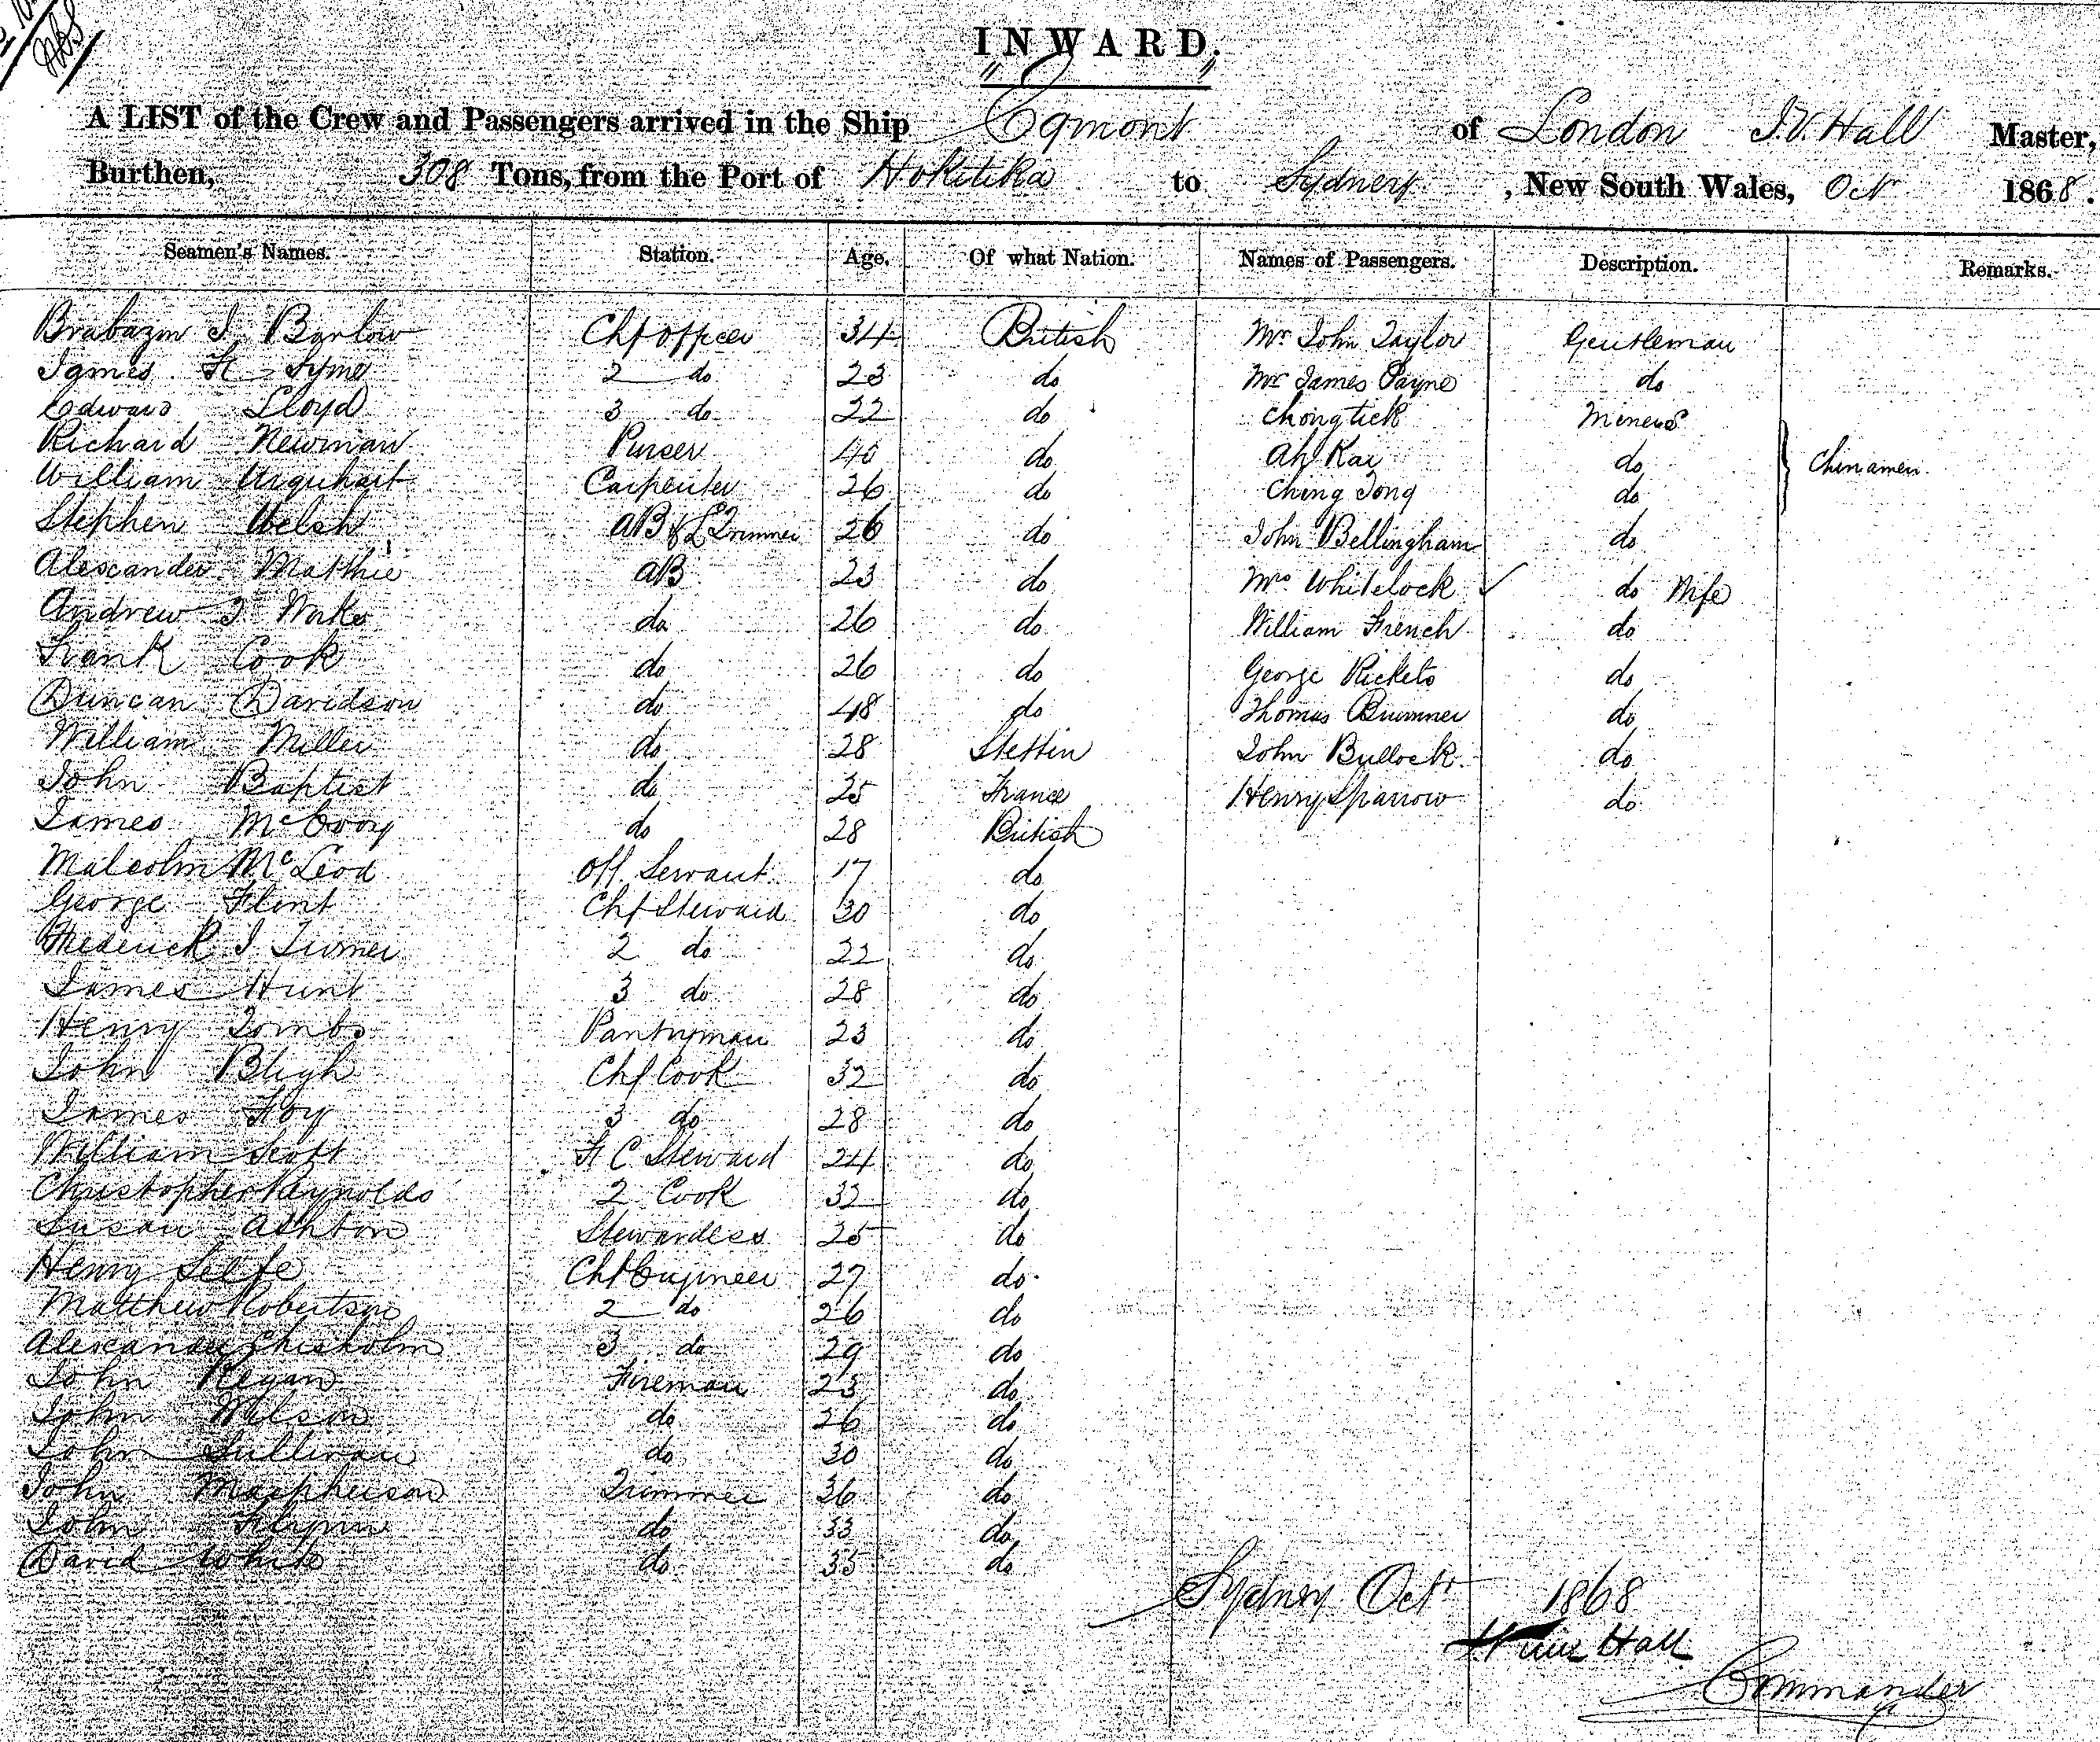 INWARD.
A LIST of the Crew and Passengers arrived in the Ship "Egmont" of London J.V. Hall Master,
Burthen, 308 Tons, from the Port of Hokitika to Sydney, New South Wales, Oct 1868.
Seamen's Names. Station. Age. Of what Nation. Names of Passengers. Description. Remarks.
Brabazon J Barlow Chf Officer 34 British Mr John Taylor Gentleman
James Syme 2 do 23 do Mr James Payne do
Edward Lloyd 3 do 22 do Chongtick Miners
Richard Newman Purser 40 do Ah Kai do Chinamen
William Urquhart Carpenter 26 do Ching Tong do
Stephen Welsh AB & L Trimmer 26 do John Bellingham do
Alexander Matthie AB 23 do Mrs Whitelock do Wife
Andrew 26 do William French do
Frank Cook do 26 do George Rickets do
Duncan Davidson do 48 do Thomas Brumner do
William Miller do 28 Stettin John Bullock do
John Baptist do 25 France Henry Sparrow do
James McEvoy do 28 British
Malcolm McLeod Off. Servant 17 do
George Flint Chf Steward 30 do
Frederick J Turner 2 do 22 do
James Hunt 3 do 28 do
Henry Tombs Pantryman 23 do
John Bligh Chf Cook 32 do
James Foy 3 do 28 do
William Scott F C Steward 24 do
Christopher Reynolds 2 Cook 32 do
Susan Ashton Stewardess 25 do
Henry Selfe Chf Engineer 27 do
Matthew Robertson 2 do 26 do
Alexander Chisholm 3 do 29 do
John Regan Fireman 23 do
John Wilson do 26 do
John Sullivan do 30 do
John Macpherson Trimmer 36 do
John Flynn do 33 do
David White do 35 do
Sydney Oct 1868
Hall
Commander